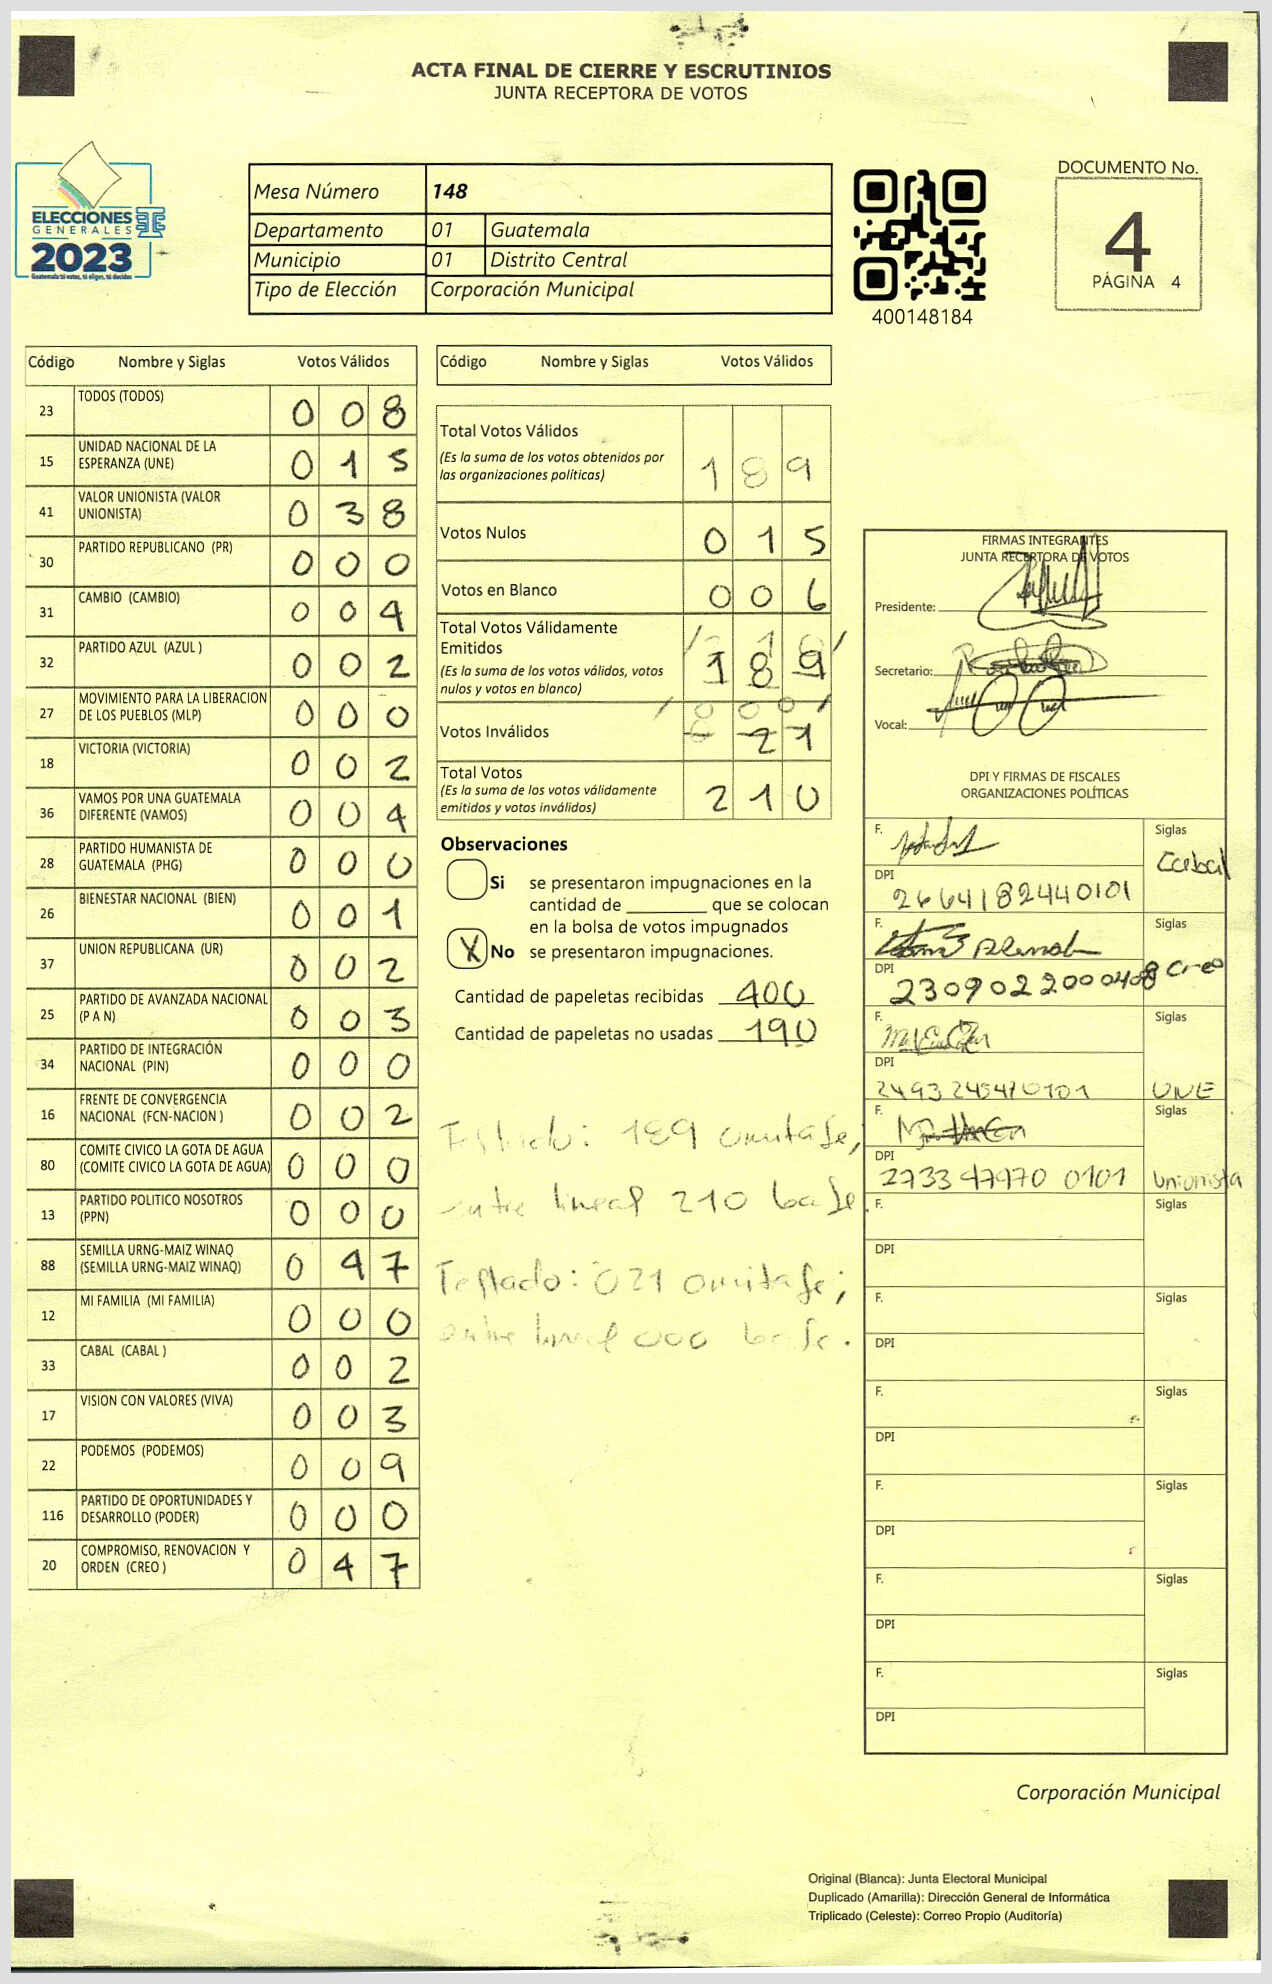 ACTA FINAL DE CIERRE Y ESCRUTINIOS
JUNTA RECEPTORA DE VOTOS
ELECCIONES
GENERALES
2023
Guatemala tú votas, tú eliges, tú decides
Mesa Número 148
Departamento 01 Guatemala
Municipio 01 Distrito Central
Tipo de Elección Corporación Municipal
400148184
DOCUMENTO No.
4
PÁGINA 4
Código Nombre y Siglas Votos Válidos
23 TODOS (TODOS) 0 0 8
15 UNIDAD NACIONAL DE LA ESPERANZA (UNE) 0 1 5
41 VALOR UNIONISTA (VALOR UNIONISTA) 0 3 8
30 PARTIDO REPUBLICANO (PR) 0 0 0
31 CAMBIO (CAMBIO) 0 0 4
32 PARTIDO AZUL (AZUL ) 0 0 2
27 MOVIMIENTO PARA LA LIBERACION DE LOS PUEBLOS (MLP) 0 0 0
18 VICTORIA (VICTORIA) 0 0 2
36 VAMOS POR UNA GUATEMALA DIFERENTE (VAMOS) 0 0 4
28 PARTIDO HUMANISTA DE GUATEMALA (PHG) 0 0 0
26 BIENESTAR NACIONAL (BIEN) 0 0 1
37 UNION REPUBLICANA (UR) 0 0 2
25 PARTIDO DE AVANZADA NACIONAL (P A N) 0 0 3
34 PARTIDO DE INTEGRACIÓN NACIONAL (PIN) 0 0 0
16 FRENTE DE CONVERGENCIA NACIONAL (FCN-NACION ) 0 0 2
80 COMITE CIVICO LA GOTA DE AGUA (COMITE CIVICO LA GOTA DE AGUA) 0 0 0
13 PARTIDO POLITICO NOSOTROS (PPN) 0 0 0
88 SEMILLA URNG-MAIZ WINAQ (SEMILLA URNG-MAIZ WINAQ) 0 4 7
12 MI FAMILIA (MI FAMILIA) 0 0 0
33 CABAL (CABAL ) 0 0 2
17 VISION CON VALORES (VIVA) 0 0 3
22 PODEMOS (PODEMOS) 0 0 9
116 PARTIDO DE OPORTUNIDADES Y DESARROLLO (PODER) 0 0 0
20 COMPROMISO, RENOVACION Y ORDEN (CREO ) 0 4 7
Código Nombre y Siglas Votos Válidos
Total Votos Válidos
(Es la suma de los votos obtenidos por
las organizaciones políticas) 1 8 9
Votos Nulos 0 1 5
Votos en Blanco 0 0 6
Total Votos Válidamente
Emitidos
(Es la suma de los votos válidos, votos
nulos y votos en blanco) 1 8 9
Votos Inválidos 0 0 0
0 2 1
Total Votos
(Es la suma de los votos válidamente
emitidos y votos inválidos) 2 1 0
Observaciones
Si se presentaron impugnaciones en la
cantidad de ________ que se colocan
en la bolsa de votos impugnados
X No se presentaron impugnaciones.
Cantidad de papeletas recibidas 400
Cantidad de papeletas no usadas 190
Testado: 189 omitase;
entre lineal 210 base.
Testado: 021 omitase;
entre lineal 000 base.
FIRMAS INTEGRANTES
JUNTA RECEPTORA DE VOTOS
Presidente:
Secretario:
Vocal:
DPI Y FIRMAS DE FISCALES
ORGANIZACIONES POLÍTICAS
F. Siglas Cabal
DPI 2664182440101
F. Siglas Creo
DPI 2309022000408
F. Siglas UNE
DPI 2493245470101
F. Siglas Unionista
DPI 2733979700101
F. Siglas
DPI
F. Siglas
DPI
F. Siglas
DPI
F. Siglas
DPI
F. Siglas
DPI
F. Siglas
DPI
Corporación Municipal
Original (Blanca): Junta Electoral Municipal
Duplicado (Amarilla): Dirección General de Informática
Triplicado (Celeste): Correo Propio (Auditoría)